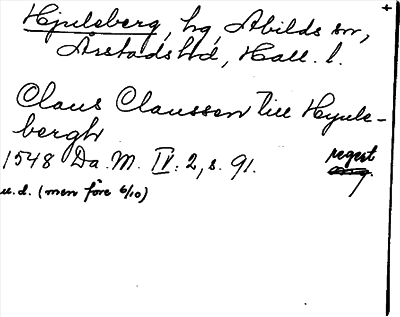 Hjulsberg, hg, Abilds sn,
Årstads hd, Hall. l.
Claus Claussen till Hyuls-
bergh
1548 Da. M. IV: 2, s. 91. regest
u.d. (men före 6/10)